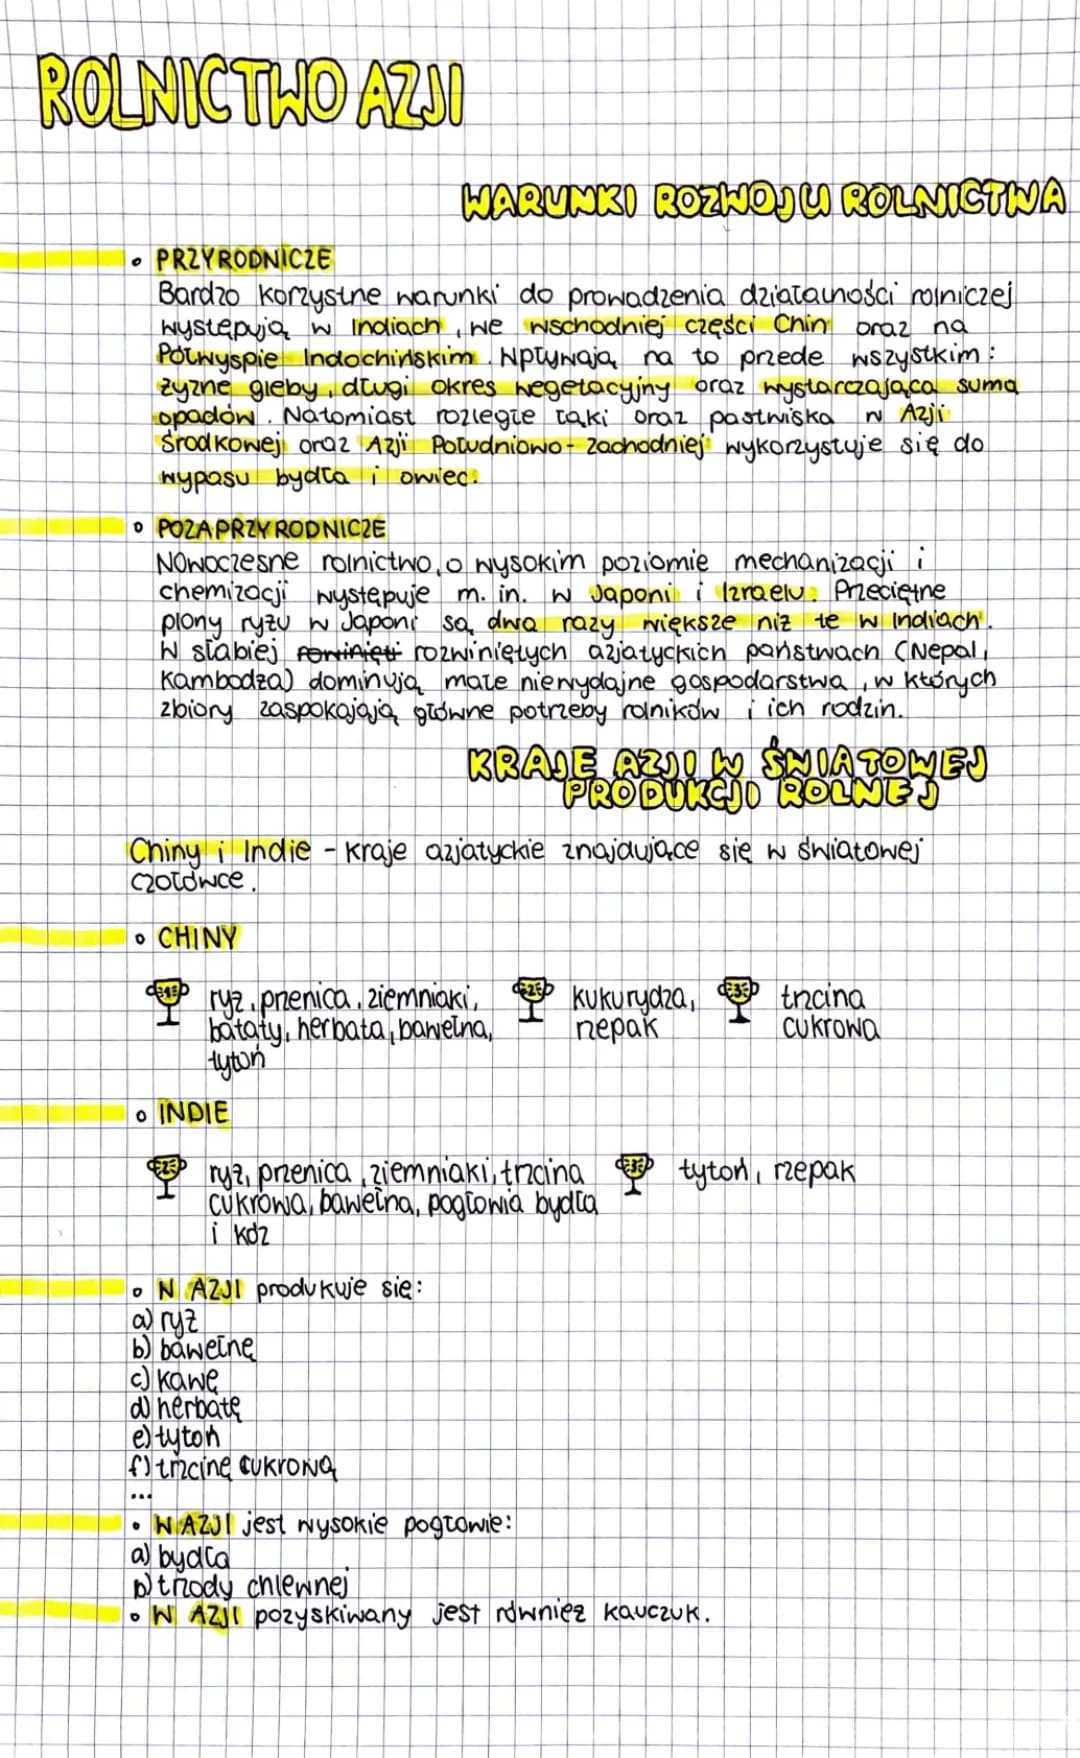 ROLNICTWO AZJI
WARUNKI ROZWOJU ROLNICTWA
• PRZYRODNICZE
Bardzo korzystne warunki do prowadzenia działalności rolniczej
występują w Indiach, we wschodniej części Chin oraz na
Półwyspie Indochińskim. Wpływają na to przede wszystkim:
żyzne gleby, długi okres wegetacyjny oraz wystarczająca suma
opadów. Natomiast rozległe łąki oraz pastwiska w Azji
Środkowej oraz Azji Południowo-Zachodniej wykorzystuje się do
wypasu bydła i owiec.
• POZAPRZYRODNICZE
Nowoczesne rolnictwo, o wysokim poziomie mechanizacji i
chemizacji występuje m. in. w Japoni i Izraelu. Przeciętne
plony ryżu w Japoni są dwa razy większe niż te w Indiach.
W słabiej rozwiniętych azjatyckich państwach (Nepal,
Kambodża) dominują małe niewydajne gospodarstwa, w których
zbiory zaspokajają główne potrzeby rolników i ich rodzin.
KRAJE AZJI W ŚWIATOWEJ
PRODUKCJI ROLNEJ
Chiny i Indie - kraje azjatyckie znajdujące się w światowej
czołówce.
• CHINY
1 ryż, przenica, ziemniaki, 2 kukurydza, 3 trzcina
bataty, herbata, bawełna, rzepak cukrowa
tytoń
• INDIE
2 ryż, przenica, ziemniaki, trzcina 3 tytoń, rzepak
cukrowa, bawełna, pogłowia bydła
i kóz
• W AZJI produkuje się:
a) ryż
b) bawełnę
c) kawę
d) herbatę
e) tytoń
f) trzcinę cukrową
...
• W AZJI jest wysokie pogłowie:
a) bydła
b) trzody chlewnej
• W AZJI pozyskiwany jest również kauczuk.